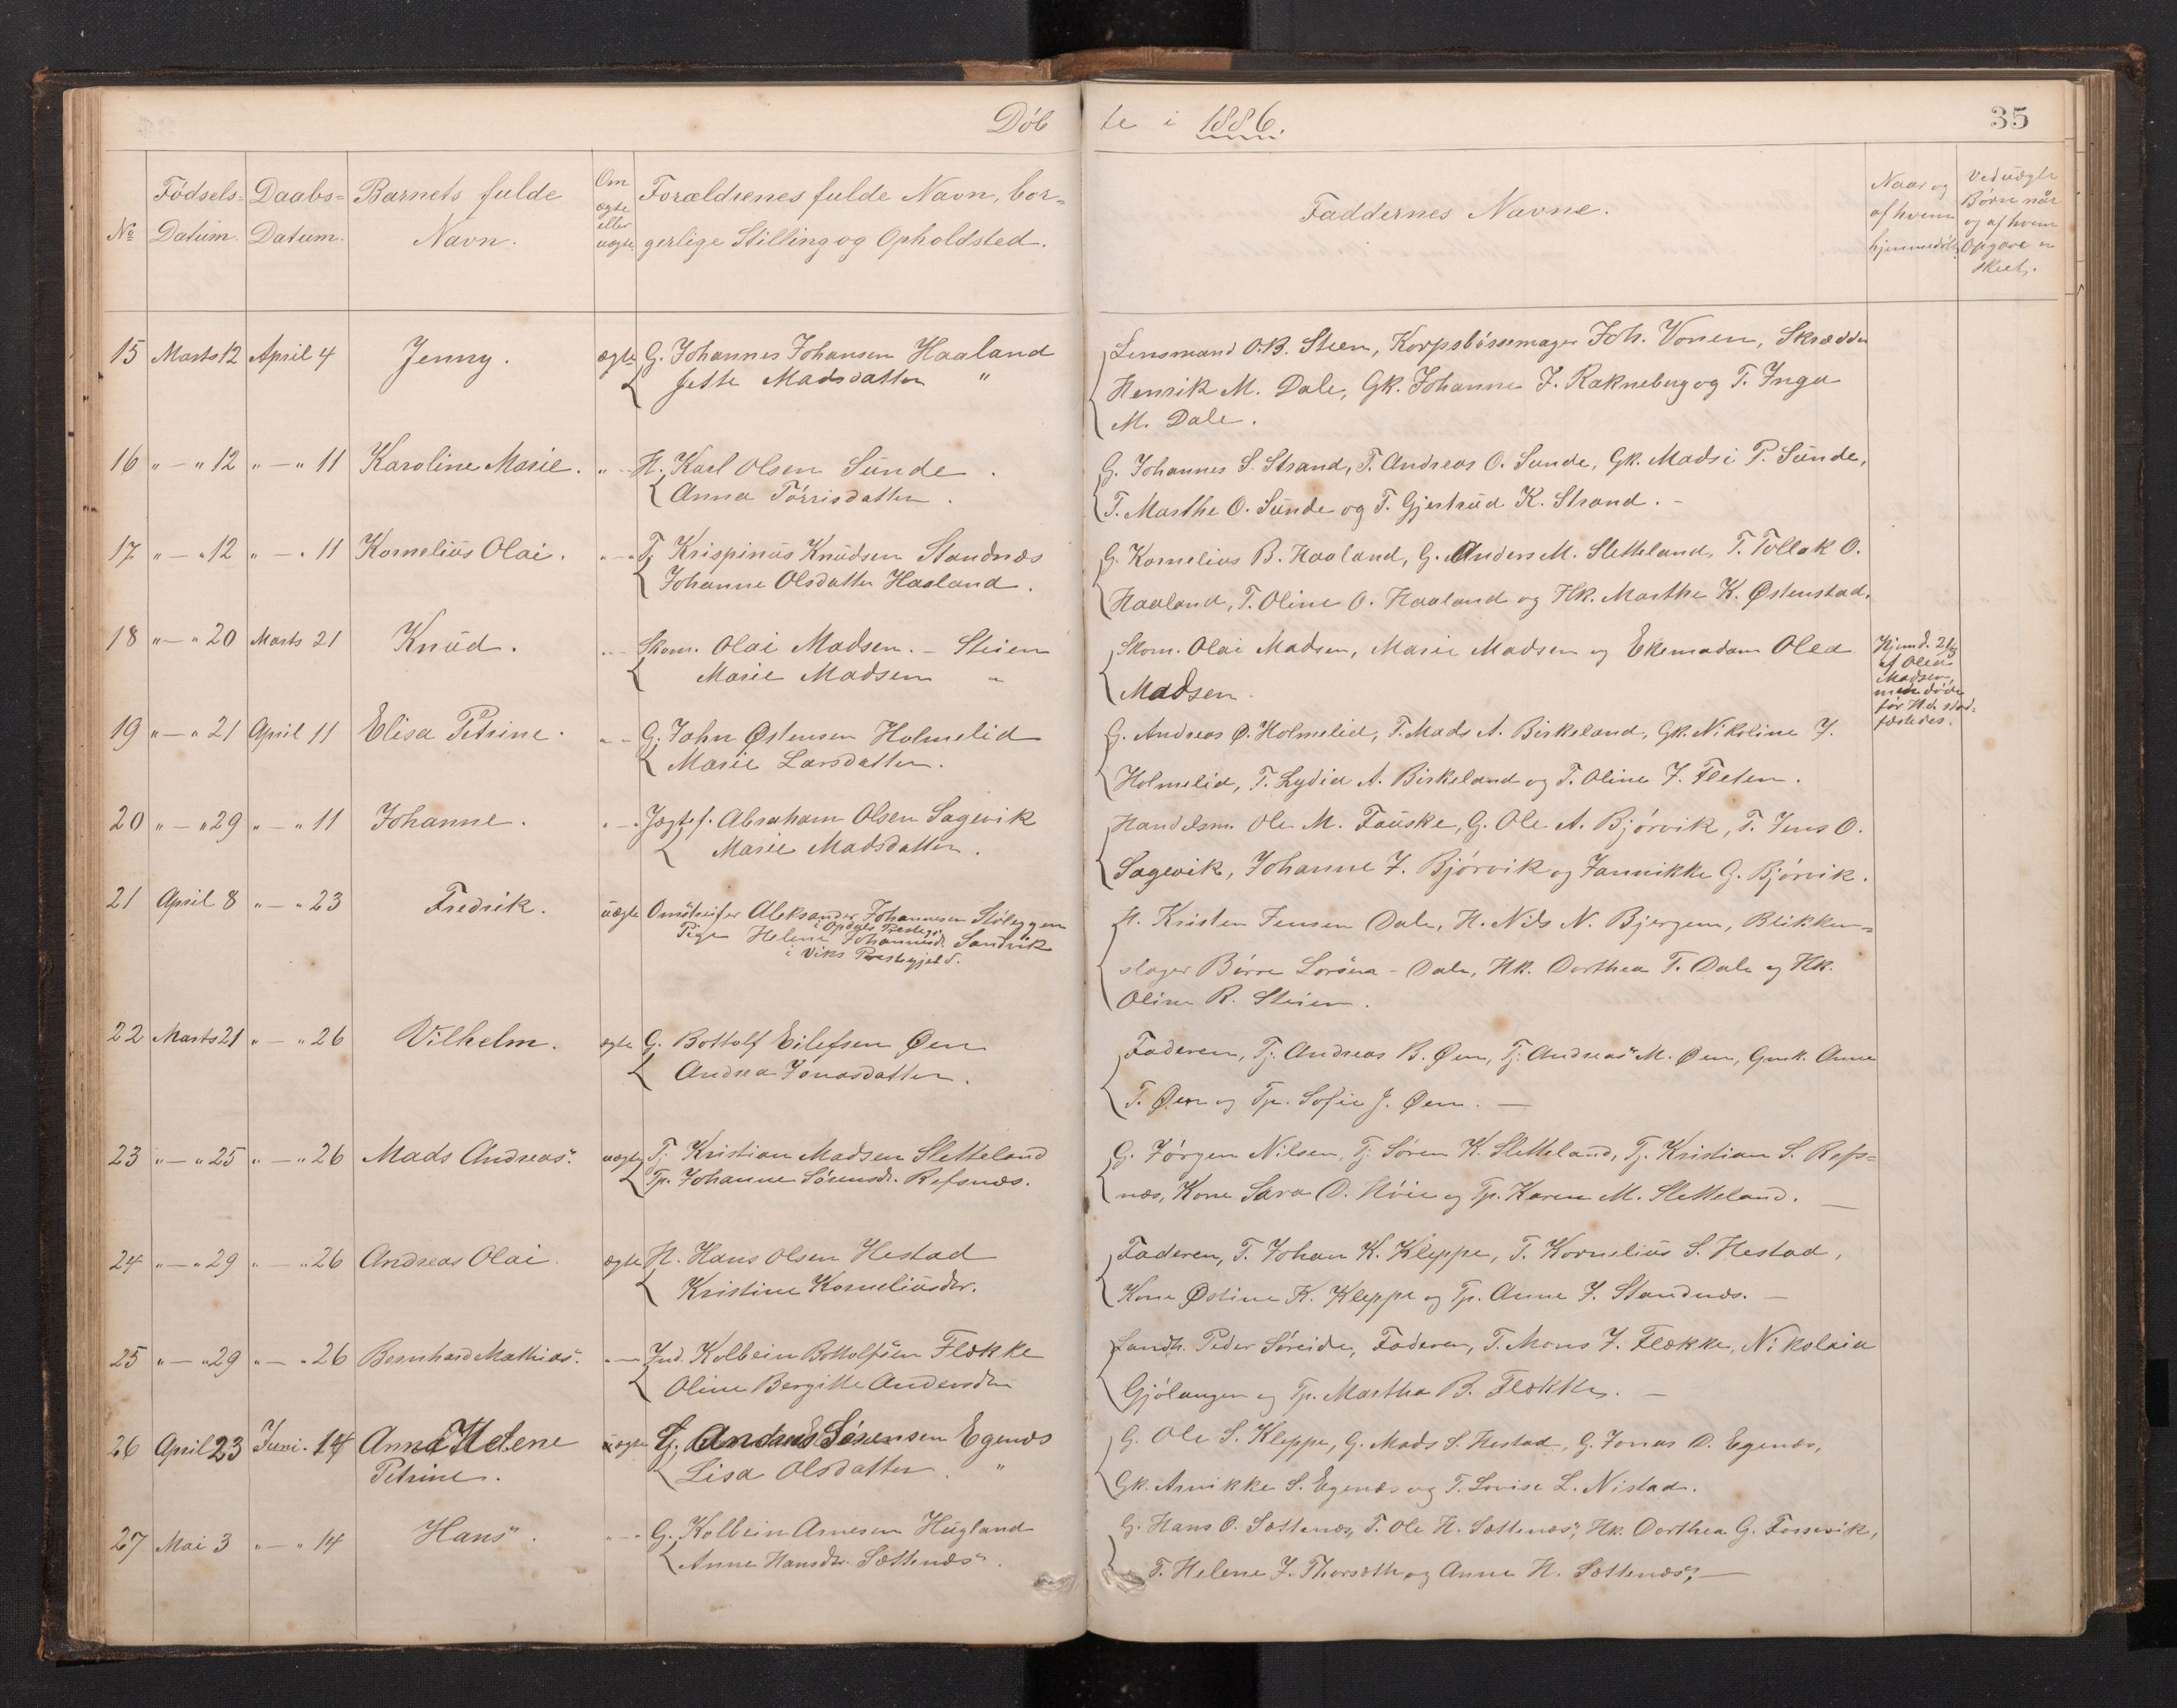 Döb te i 1886. 35
No Födsels- Datum. Daabs- Datum. Barnets fulde Navn. Om ægte eller uægte Forældrenes fulde Navn, bor- gerlige Stilling og Opholdsted. Faddernes Navne. Naar og af hvem hjemmedöbt Ved uægte Börn når og af hvem Opgave er skeet.
15 Marts 12 April 4 Jenny. ægte G. Johannes Johansen Haaland
Jette Madsdatter "
Lensmand O.B. Steen, Korpsbössemager Joh. Vonen, Skrædder
Henrik M. Dale, Gk. Johanne J. Rakneberg og T. Inga
M. Dale.
16 " — " 12 " — " 11 Karoline Marie. " — H. Karl Olsen Sunde.
Anna Törrisdatter.
G. Johannes S. Strand, T. Andreas O. Sunde, Gk. Madsi P. Sunde,
T. Marthe O. Sunde og T. Gjertrud K. Strand. -
17 " — " 12 " — " 11 Kornelius Olai. " — " Tj. Krispinus Knudsen Standnæs
Johanne Olsdatter Haaland.
G. Kornelius B. Haaland, G. Anders M. Sletteland, T. Tollak O.
Haaland, T. Oline O. Haaland og Hk. Marthe K. Østenstad.
18 " — " 20 Marts 21 Knud. " — Skom. Olai Madsen. — Steien
Marie Madsen "
Skom. Olai Madsen, Marie Madsen og Ekemadam Olea
Madsen.
Hjemd. 21/3
af Olea
Madsen,
men döde
för H.d. stad-
fæstedes.
19 " — " 21 April 11 Elisa Petrine. " — G. John Østensen Holmelid
Marie Larsdatter.
G. Andreas Ø. Holmelid, T. Mads A. Birkeland, Gk. Nikoline J.
Holmelid, T. Lydia A. Birkeland og T. Oline J. Fleten.
20 " — " 29 " — " 11 Johanne. " — Jægtef. Abraham Olsen Sagevik
Marie Madsdatter.
Handelsm. Ole M. Fauske, G. Ole A. Björvik, T. Jens O.
Sagevik, Johanne J. Björvik og Jannikke G. Björvik.
21 April 8 " — " 23 Fredrik. uægte Omstreifer Aleksander Johannesen
i Opdals Prestegj.
Pige Helene Johannesd. Sandvik
i Viks Prestegjeld.
H. Kristen Jensen Dale, H. Nils N. Bjergem, Blikken-
slager Börre - Dale, Hk. Dorthea T. Dale og Hk.
Oline R. Steien.
22 Marts 21 " — " 26 Vilhelm. ægte G. Bottolf Eilefsen Øen
Andrea Jonasdatter.
Faderen, Tj. Andreas B. Øen, Tj. Andreas M. Øen, Gmk. Anne
T. Øen og Tp. Sofie J. Øen. —
23 " — " 25 " — " 26 Mads Andreas. uægte Tj. Kristian Madsen Sletteland
Tp. Johanne Sörensdr. Refsnæs.
G. Jörgen Nilsen, Tj. Sören K. Sletteland, Tj. Kristian S. Refs-
næs, Kone Sara D. Höie og Tp. Karen M. Sletteland. —
24 " — " 29 " — " 26 Andreas Olai. ægte H. Hans Olsen Hestad
Kristine Korneliusdr.
Faderen, T. Johan K. Kleppe, T. Kornelius S. Hestad,
Kone Østine K. Kleppe og Tp. Anne J. Standnæs. —
25 " — " 29 " — " 26 Bernhard Mathias. " — Ind. Kolbein Bottolfsen Flekke
Oline Bergitte Andersdr
Landh. Peder Söreide, Faderen, T. Mons J. Flekke, Nikolaia
Gjölanger og Tp. Martha B. Flekke. —
26 April 23 Juni 14 Anna Helene
Petrine. uægte Andreas Sörensen Egenæs
Lisa Olsdatter. "
G. Ole S. Kleppe, G. Mads S. Hestad, G. Jonas D. Egenæs,
Gk. Annikke S. Egenæs og T. Lovise L. Nistad.
27 Mai 3 " — " 14 Hans. " — " G. Kolbein Arnesen Hugland
Anne Hansdr. Sættenæs.
G. Hans O. Sættenæs, T. Ole H. Sættenæs, Hk. Dorthea G. Fossevik,
T. Helene J. Thorsæth og Anne H. Sættenæs, —